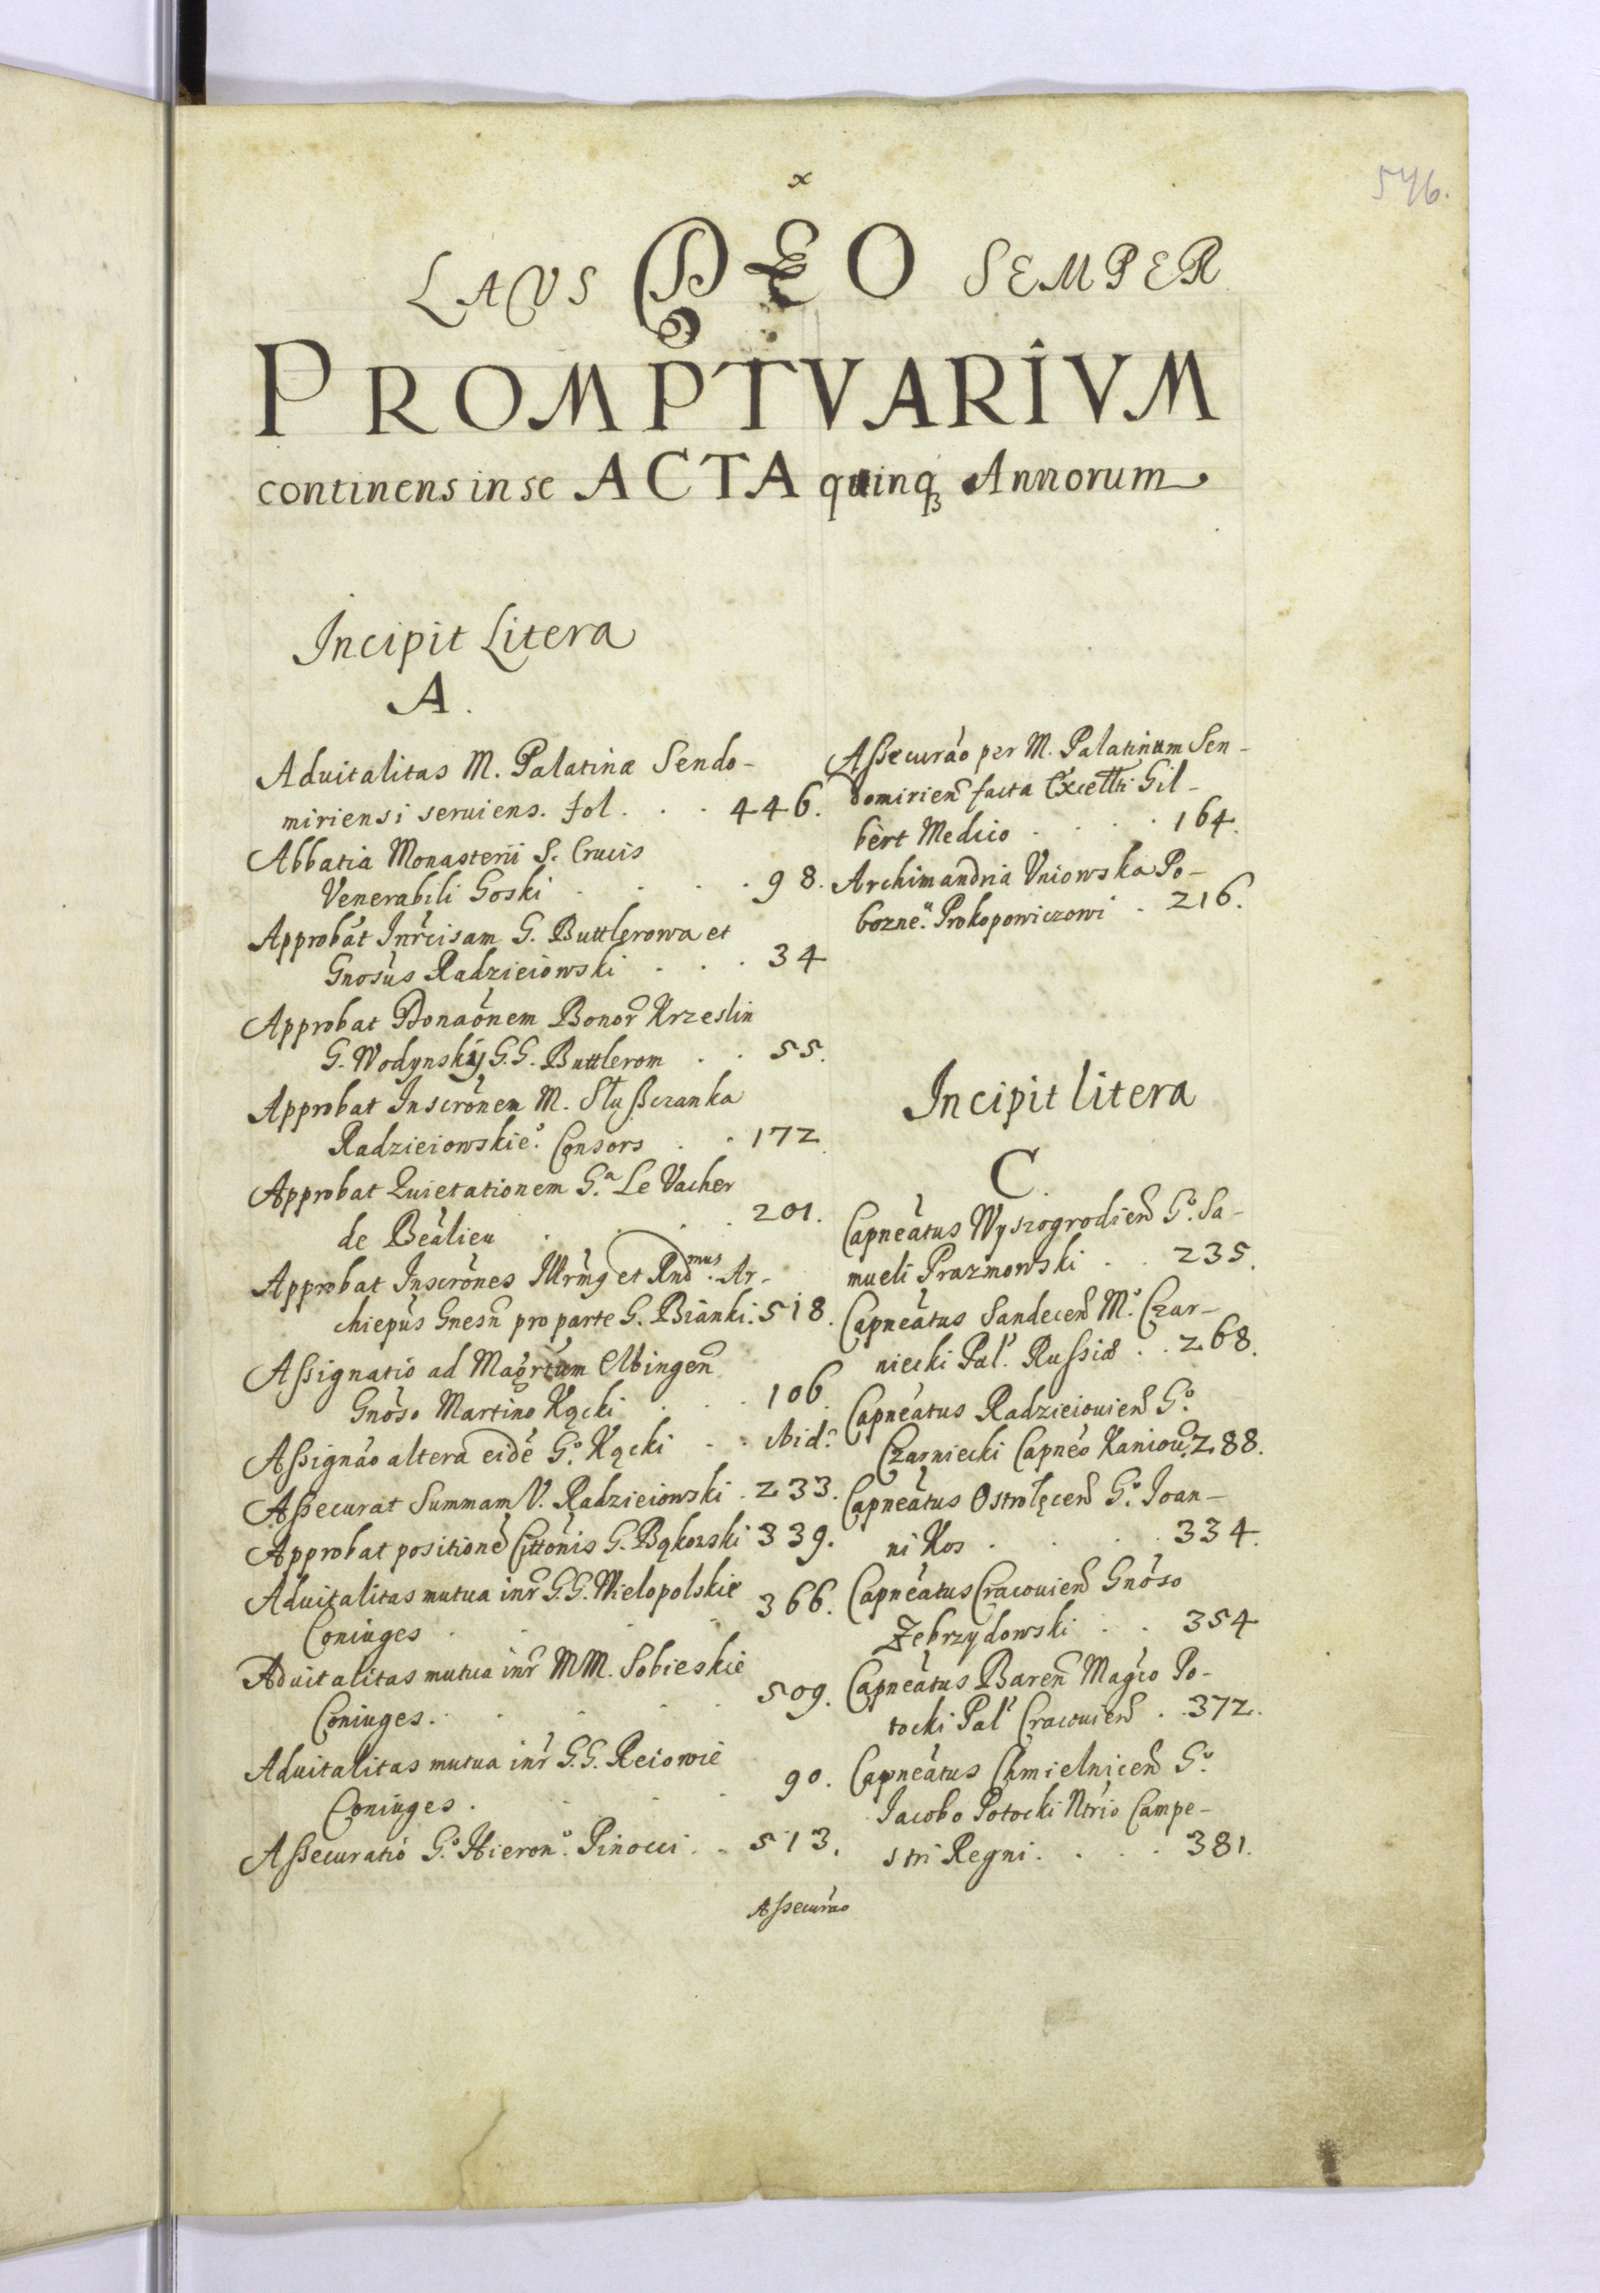 546.
x
LAVS DEO SEMPER
PROMPTVARIVM
continens in se ACTA quinq; Annorum
Incipit Litera
A.
Aduitalitas M. Palatinæ Sendo-
miriensi seruiens. fol. . . 446.
Abbatia Monasterii S. Crucis
Venerabili Goski . . . . 98.
Approbat Inrcisam G. Buttlerowa et
Gnosus Radzieiowski . . . 34
Approbat Donaonem Bonor Krzeslin
G. Wodynskij G.G. Buttlerom . . 55.
Approbat Inscronem M. Słuszczanka
Radzieiowskie.° Consors . . 172.
Approbat Quietationem G.ª Le Vacher
de Bealieu . . . . 201.
Approbat Inscrones Illrmg et Rnd.mus Ar-
chiepus Gnesn pro parte G. Bianki. 518.
Assignatio ad Magrtum Elbingen
Gnoso Martino Kącki . . . 106
Assignao altera eide G.° Kącki . . ibid.
Assecurat Summam V. Radzieiowski . 233.
Approbat positione Cittonis G. Bąkowski 339.
Aduitalitas mutua inr G.G. Wielopolskie
Coniuges . . . . 366.
Aduitalitas mutua inr MM. Sobieskie
Coniuges. . . . . 509.
Aduitalitas mutua inr G.G. Reiowie
Coniuges . . . . 90.
Assecuratio G.° Hieron.° Pinocci . . 513.
Assecurao
Assecurao per M. Palatinum Sen-
domirien facta Excellti Gil-
bert Medico . . . . 164.
Archimandria Vniowska Po-
bozne.ᵘ Prokopowiczowi . 216.
Incipit litera
C.
Capneatus Wyszogrodien G.° Sa-
mueli Prazmowski . . 235.
Capneatus Sandecen M.° Czar-
niecki Pal.ⁱ Russiæ . . 268.
Capneatus Radzieiouien G.°
Czarniecki Capneo Kaniou. 288.
Capneatus Ostrołęcen G.° Joan-
ni Kos . . . . 334.
Capneatus Cracouien Gnoso
Zebrzydowski . . 354
Capneatus Baren Magco Po-
tocki Pal.ⁱ Cracouien . . 372.
Capneatus Chmielnicen G.°
Jacobo Potocki Ntrio Campe-
stri Regni. . . . 381.